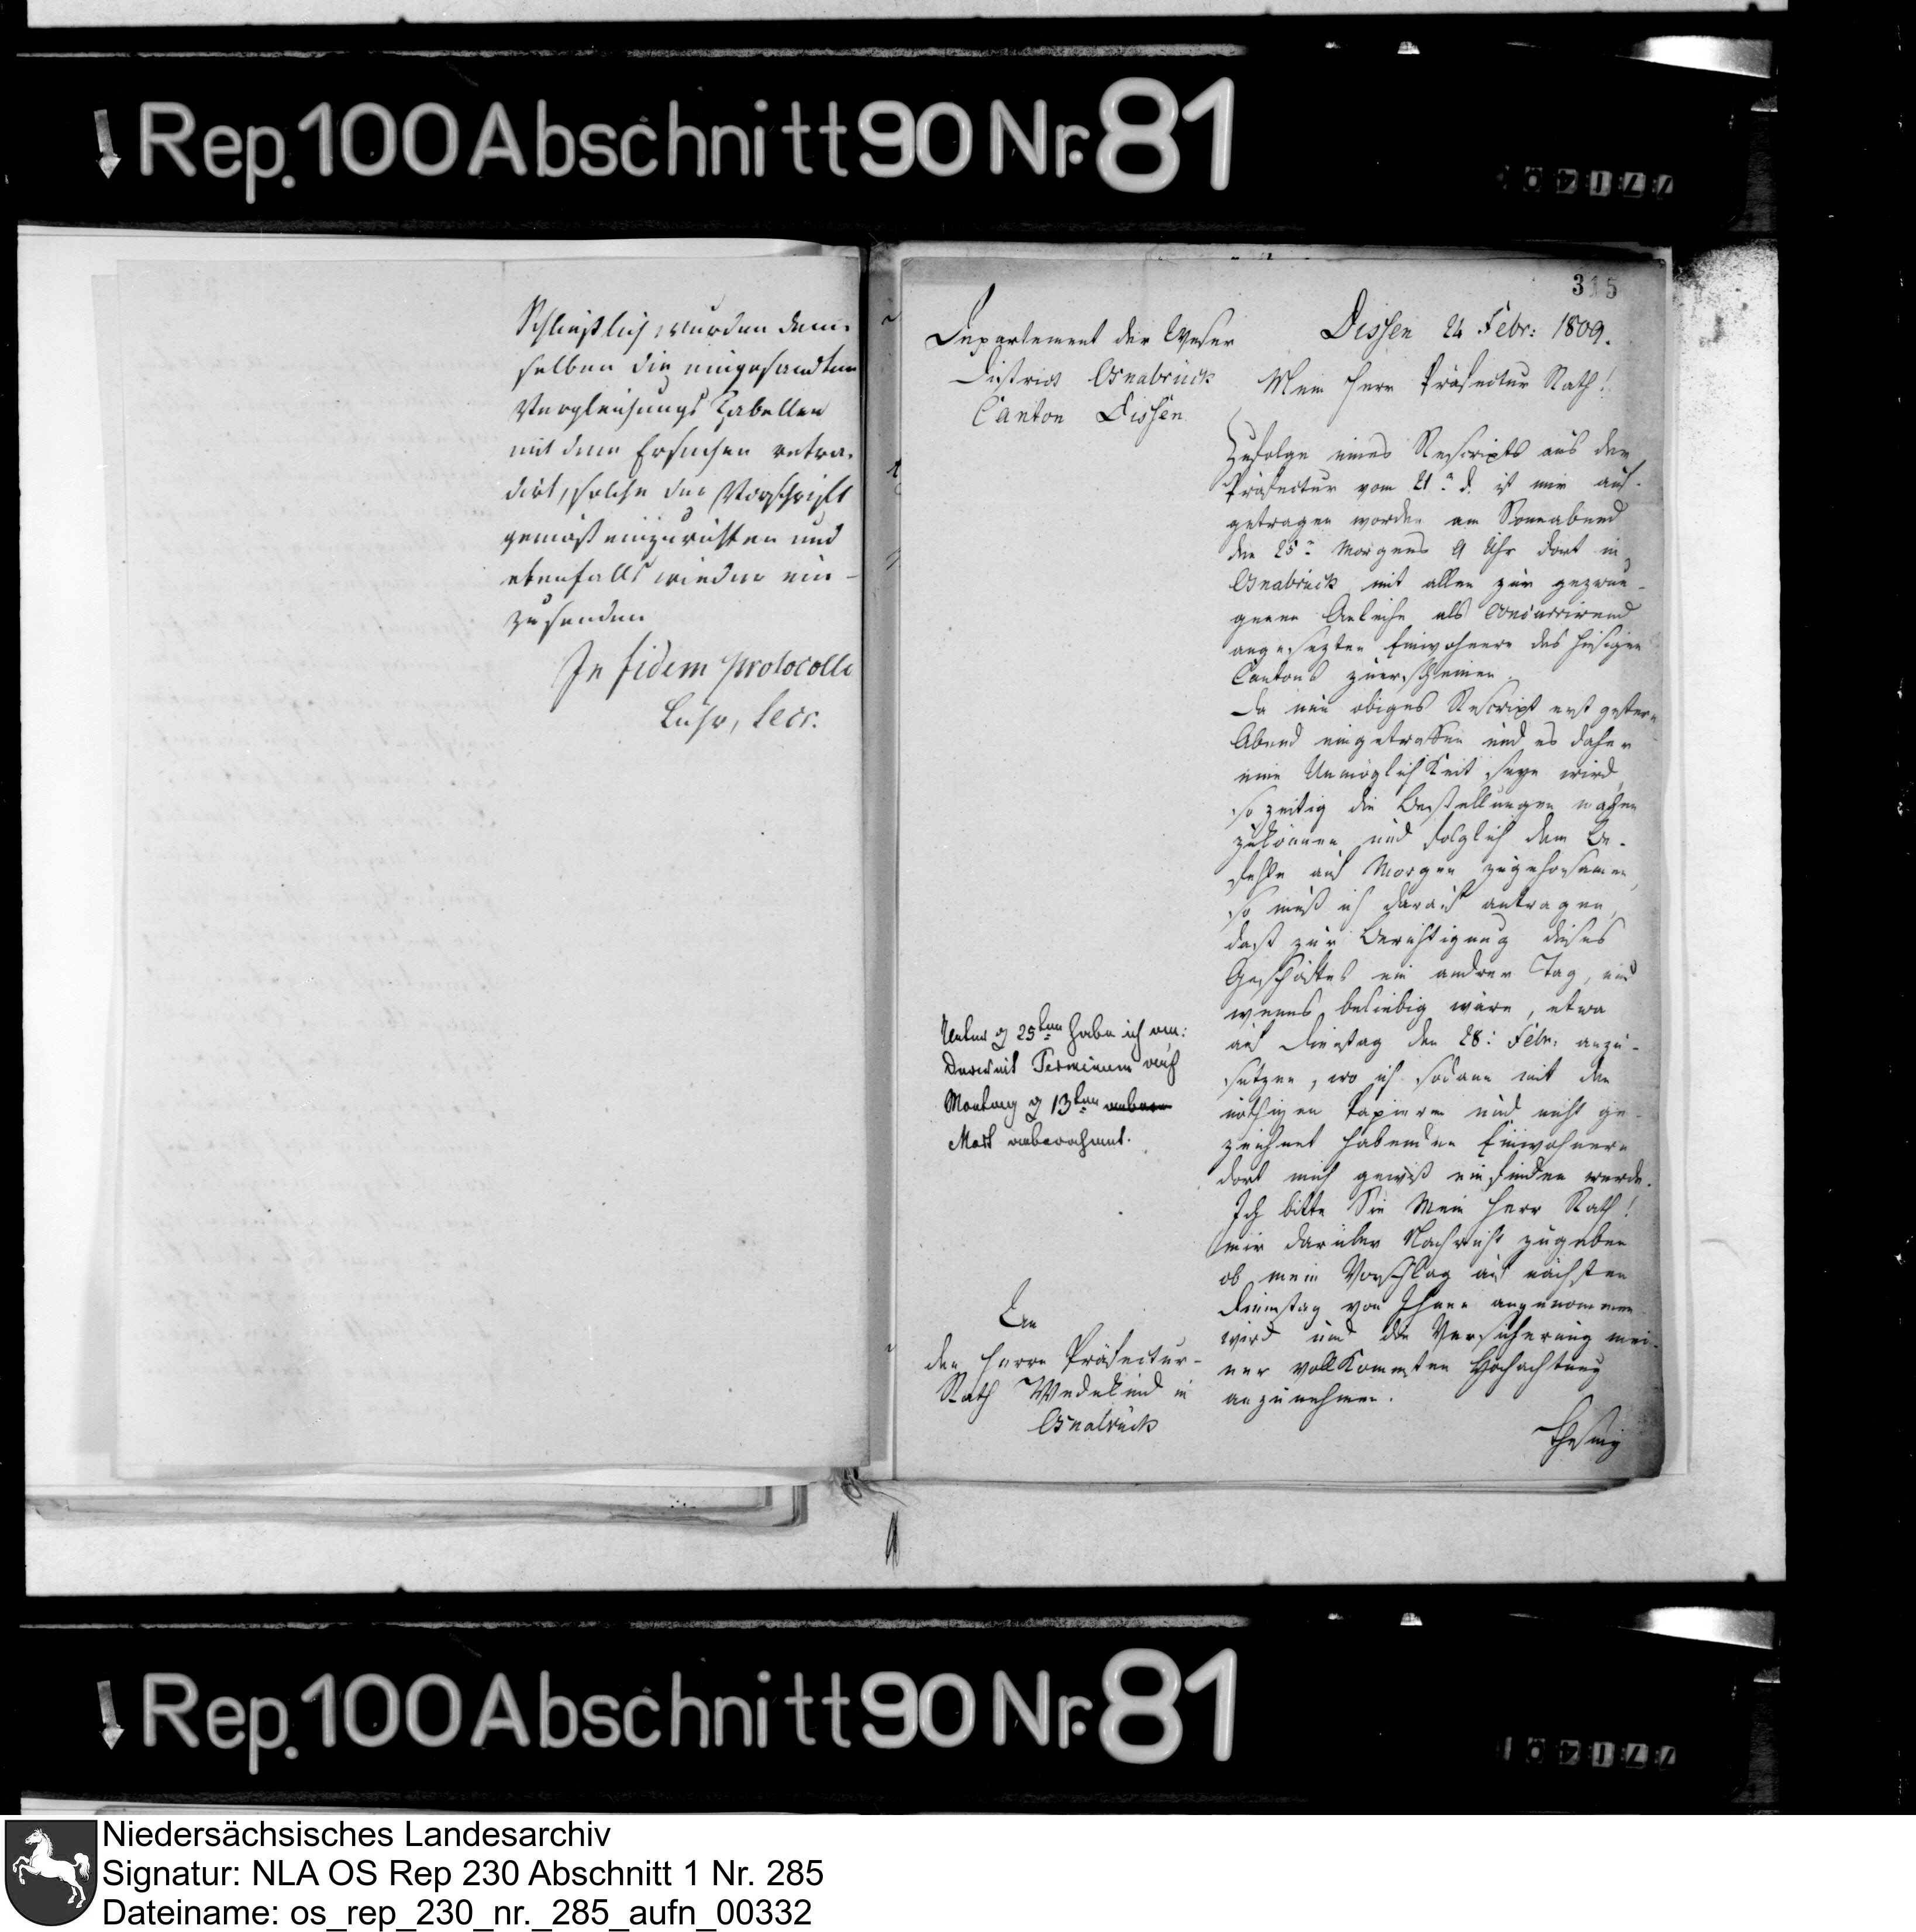 Rep. 100 Abschnitt 90 Nr. 81
Schließlich wurden dem-
selben die eingesandten
Vergleichungs Tabellen
mit dem Ersuchen retra-
dirt, solche der Vorschrift
gemäß einzurichten und
ebenfalls wieder ein-
zusenden
In fidem protocolli
Lühr, Secr.
315
Departement der Weser
District Osnabrück
Canton Dissen
Dissen 24 Febr: 1809.
Mein Herr Präfectur Rath!
Zufolge eines Rescripts aus der
Präfectur vom 21n d. ist mir auf-
getragen worden am Sonnabend
den 25n Morgens 9 Uhr dort in
Osnabrück mit allen zur gezwun-
genen Anleihe als Concurrirend
angesezten Einwohnern des hiesigen
Cantons zuerscheinen.
Da nun obiges Rescript erst gestern
Abend eingetroffen und es daher
eine Unmöglichkeit seyn wird,
so zeitig die Bestellungen machen
zukönnen und folglich dem Be-
fehle auf Morgen zugehorsamen,
so muß ich darauf antragen,
daß zur Berichtigung dieses
Geschäftes ein andrer Tag, und
wenns beliebig wäre, etwa
auf Dienstag den 28: Febr: anzu-
setzen, wo ich sodann mit den
nöthigen Papieren und nicht ge-
zeichnet habenden Einwohnern
dort mich gewiß einfinden werde.
Ich bitte Sie Mein Herr Rath!
mir darüber Nachricht zugeben
ob mein Vorschlag auf nächsten
Dienstag von Ihnen angenommen
wird und die Versicherung mei-
ner vollkommsten Hochachtung
anzunehmen.
Thesing
Unter d 25ten habe ich
Terminum auf
Montag d 13ten
Mart anberahmt.
An
den Herrn Präfectur-
Rath Wedekind in
Osnabrück
Rep. 100 Abschnitt 90 Nr. 81
Niedersächsisches Landesarchiv
Signatur: NLA OS Rep 230 Abschnitt 1 Nr. 285
Dateiname: os_rep_230_nr._285_aufn_00332